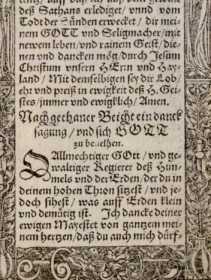 deß Sathans erlediget / vnnd vom
Todt der Sünden erwecket / dir mei⸗
nem GOTT vnd Seligmacher / mit
newem leben / vnd rainem Geist / die⸗
nen vnd dancken mög / durch Jesum
Christum vnsern HErrn vnd Hay⸗
land / Mit demselbigen sey dir Lob /
ehr vnd preiß in ewigkeit deß H. Gei⸗
stes / jmmer vnd ewigklich / Amen.
Nach gethaner Beicht ein danck
sagung / vnd sich GOTT
zu beuelhen.
O Allmechtiger GOtt / vnd ge⸗
waltiger Regierer deß Him⸗
mels vnd der Erden / der du in
deinem hohen Thron sitzest / vnd je⸗
doch sihest / was auff Erden klein
vnd demütig ist. Ich dancke deiner
ewigen Mayestet von gantzem mei⸗
nem hertzen / daß du auch mich dürf⸗